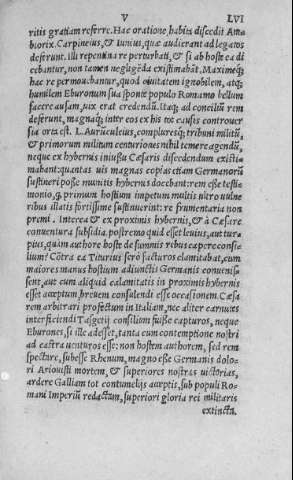 V LVI
ritis gratiam referre. Hac oratione habita discedit Am
biorix. Carpineius, & Iunius, quæ audierant ad legatos
deferunt. illi repentina re perturbati, & si ab hoste ea di
cebantur, non tamen negligẽda existimabãt. Maximeq;
hac re permouebantur, quod ciuitatem ignobilem, atq;
humilem Eburonum sua spontẽ populo Romano bellum
facere ausam, uix erat credendũ. Itaq; ad conciliũ rem
deferunt, magnaq; inter eos ex his rex causis controuer
sia orta est. L. Aurũculeius, compluresq; tribuni militũ,
& primorum militum centuriones nihil temere agendũ,
neque ex hybernis iniussu Cæsaris discedendum existi=
mabant: quantas uis magnas copias etiam Germanorũ
sustineri posse munitis hybernis docebant: rem esse testi=
monio, q. primum hostium impetum multis ultro uulne
ribus illatis fortissime sustinuerint: re frumentaria non
premi. Interea & ex proximis hybernis, & à Cæsare
conuentura subsidia. postremo quid esset leuius, aut tur=
pius, quàm authore hoste de summis rebus capere consi=
lium? Cõtra ea Titurius sero facturos clamitabat, cum
maiores manus hostium adiunctis Germanis conuenis=
sent, aut cum aliquid calamitatis in proximis hybernis
esset acceptum breuem consulendi esse occasionem. Cæsa
rem arbitrari profectum in Italiam, nec aliter carnutes
interficiendi Tasgetij consilium fuisse capturos, neque
Eburones, si ille adesset, tanta cum contemptione nostri
ad castra uenturos esse: non hostem authorem, sed rem
spectare, subesse Rhenum, magno esse Germanis dolo=
ri Ariouisti mortem, & superiores nostras uictorias,
ardere Galliam tot contumelijs acceptis, sub populi Ro=
mani Imperiũ redactam, superiori gloria rei militaris
extincta.